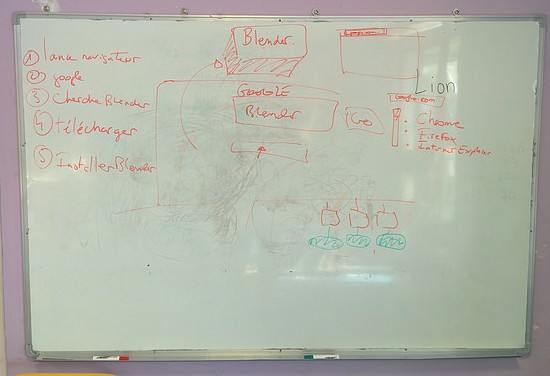 ① lance navigateur
② google
③ Cherche Blender
④ télécharger
⑤ Installer Blender
Blender
GOOGLE
Blender
Lion
Google.com
Chrome
FireFox